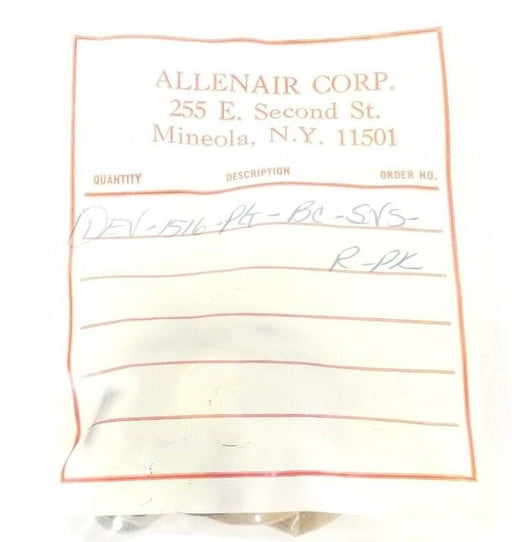 ALLENAIR CORP.
255 E. Second St.
Mineola, N.Y. 11501
QUANTITY DESCRIPTION ORDER NO.
1 DEV-1516-PG-BC-SVS-
R-PK